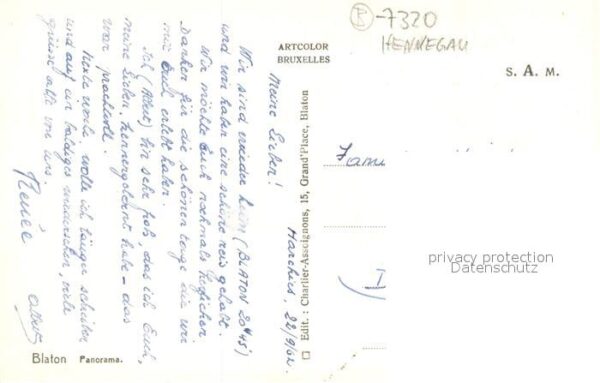 B-7320
HENNEGAU
ARTCOLOR
BRUXELLES
S. A. M.
Harchies, 22/9/62
Meine Lieben!
Wir sind wieder heim (BLATON 20h45)
und wir haben eine schöne reis gehabt.
Wir möchte Euch nochmals
Danken für die schönen tage die wir
mit Euch erlebt haben.
Ich (Albert) bin sehr froh, das ich Euch,
meine Lieben, kennengelernt habe - das
war prachtvoll.
wolle ich länger schreiben
und auf ein baldiges viele
grüsse alle von uns.
Renée
Albert
Edit. : Charlier-Assoignons, 15, Grand'Place, Blaton
Blaton Panorama.
Fami
privacy protection
Datenschutz